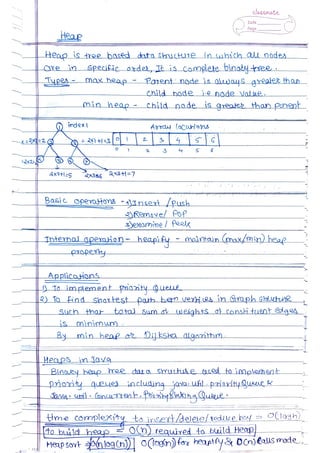 classmate
Date
Page
Heap
Heap is tree based data structure in which all nodes
are in specific order, It is complete binary tree.
Types - max heap - Parent node is always greater than
child node i.e node value.
min heap - child node is greater than parent
index1
Array locations
2x1=2
2x1+1=3
0 1 2 3 4 5 6
0 1 2 4 5 6
2x2+1=5
2x3=6
2x3+1=7
Basic operations - 1) Insert / Push
2) Remove / POP
3) Examine / Peek
Internal operation - heapify - maintain (max/min) heap
property
Applications
1) To implement priority Queue
2) To find shortest path betn vertices in Graph structure
such that total sum of weights of constituent edges
is minimum.
By min heap or Dijksha algorithm.
Heaps in Java
Binary heap tree data structure used to implement
priority queues including java.util.priorityQueue &
Java.util.concurrent.PriorityBlockingQueue.
time complexity to insert/delete/reduce key = O(logn)
To build heap = O(n) required to build Heap
Heapsort O(nlog(n)) O(log(n)) for heapify & O(n) calls made